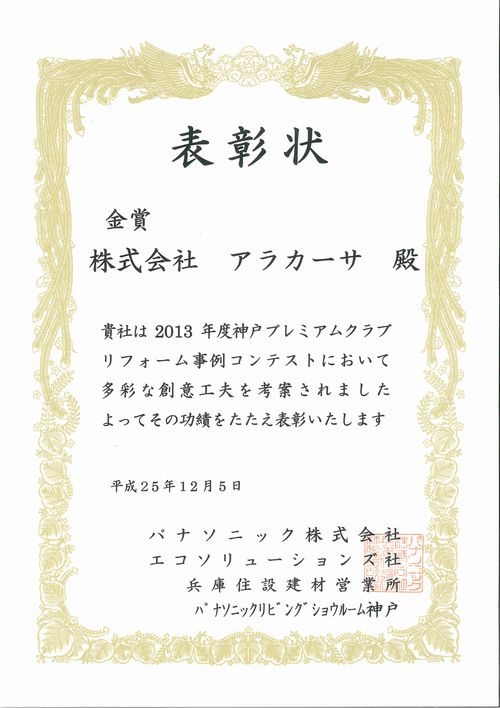 表彰状
金賞
株式会社 アラカーサ 殿
貴社は 2013 年度神戸プレミアムクラブ
リフォーム事例コンテストにおいて
多彩な創意工夫を考案されました
よってその功績をたたえ表彰いたします
平成25年12月5日
パナソニック株式会社
エコソリューションズ社
兵庫住設建材営業所
ﾊﾟﾅソニックリビングショウルーム神戸